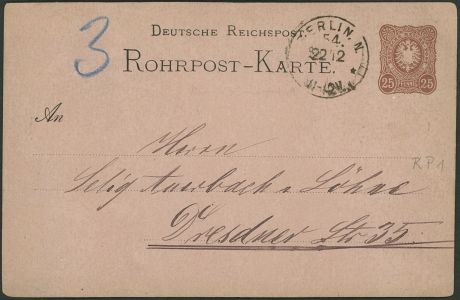 3
DEUTSCHE REICHSPOST
ROHRPOST-KARTE.
BERLIN. N.
54.
22 12
11-12V.
25 PFENNIG 25
An
Herren
Selig Auerbach & Söhne
Dresdner Str 35.
R.P 1